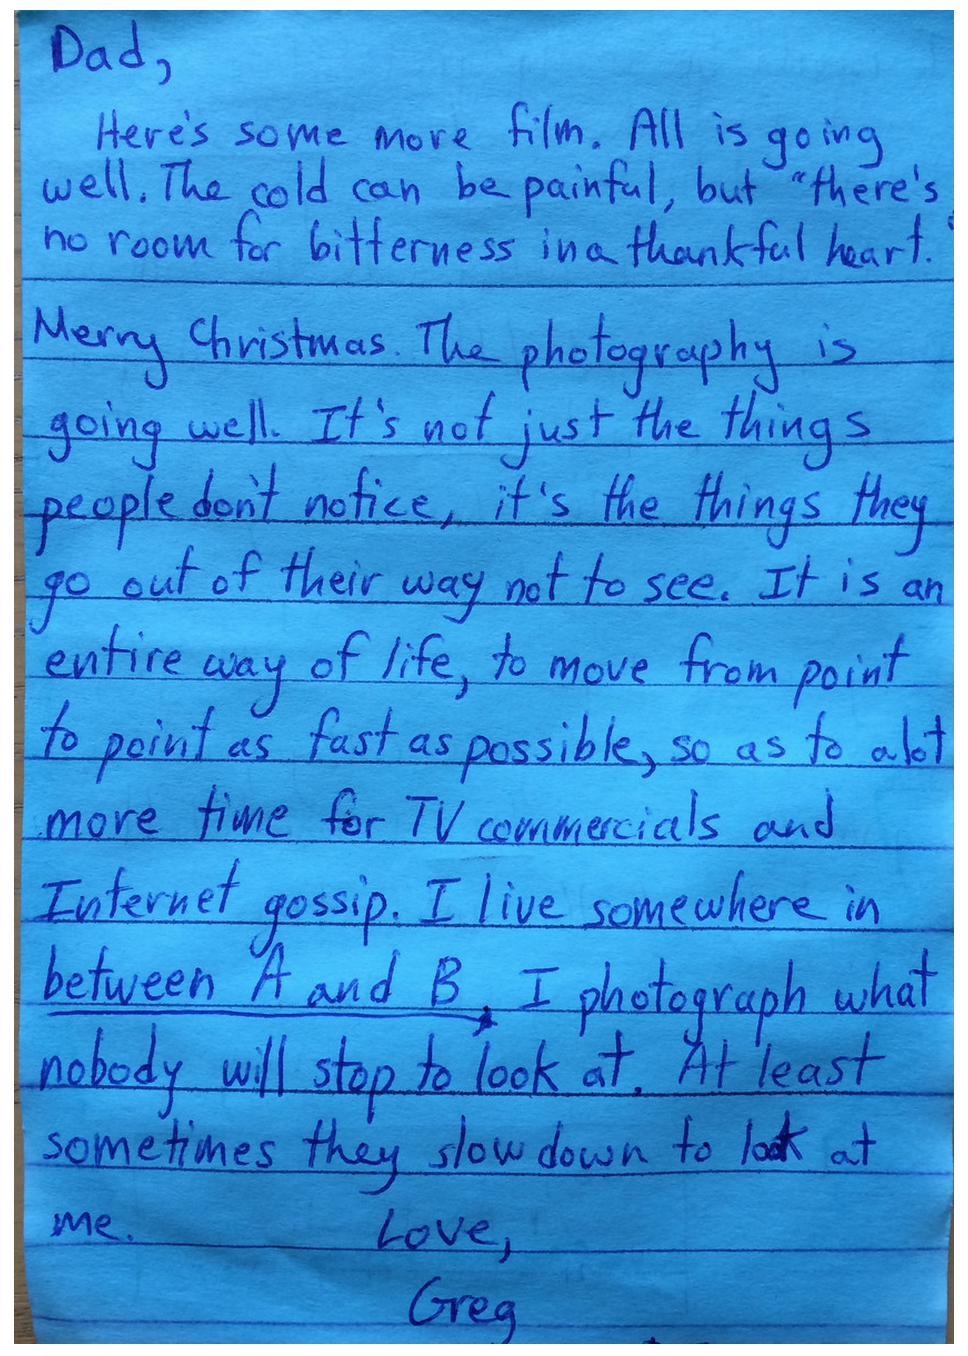 Dad,
Here's some more film. All is going
well. The cold can be painful, but "there's
no room for bitterness in a thankful heart."
Merry Christmas. The photography is
going well. It's not just the things
people don't notice, it's the things they
go out of their way not to see. It is an
entire way of life, to move from point
to point as fast as possible, so as to alot
more time for TV commercials and
Internet gossip. I live somewhere in
between A and B. I photograph what
nobody will stop to look at. At least
sometimes they slow down to look at
me. Love,
Greg